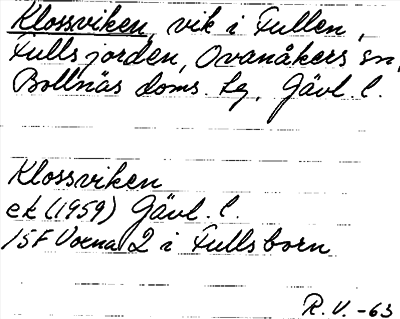 Klossviken, vik i Fullen,
Fullsjorden, Ovanåkers sn,
Bollnäs doms. tg, Gävl. l.
Klossviken
ek (1959) Gävl. l.
15F Voxna 2 i Fullsborn
R. V. -63